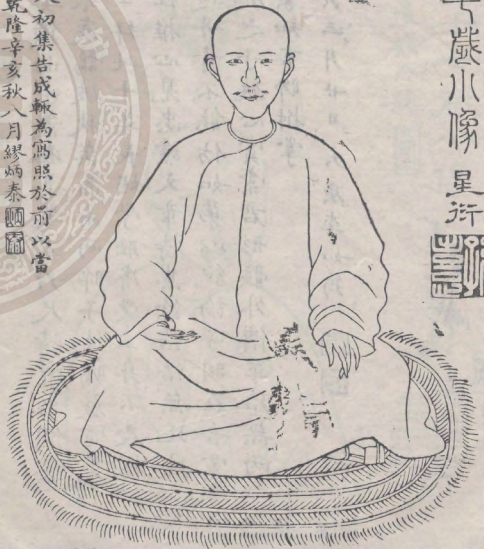 歲小像 星衍
初集告成輒為寫照於前以當
乾隆辛亥秋八月繆炳泰 炳 泰